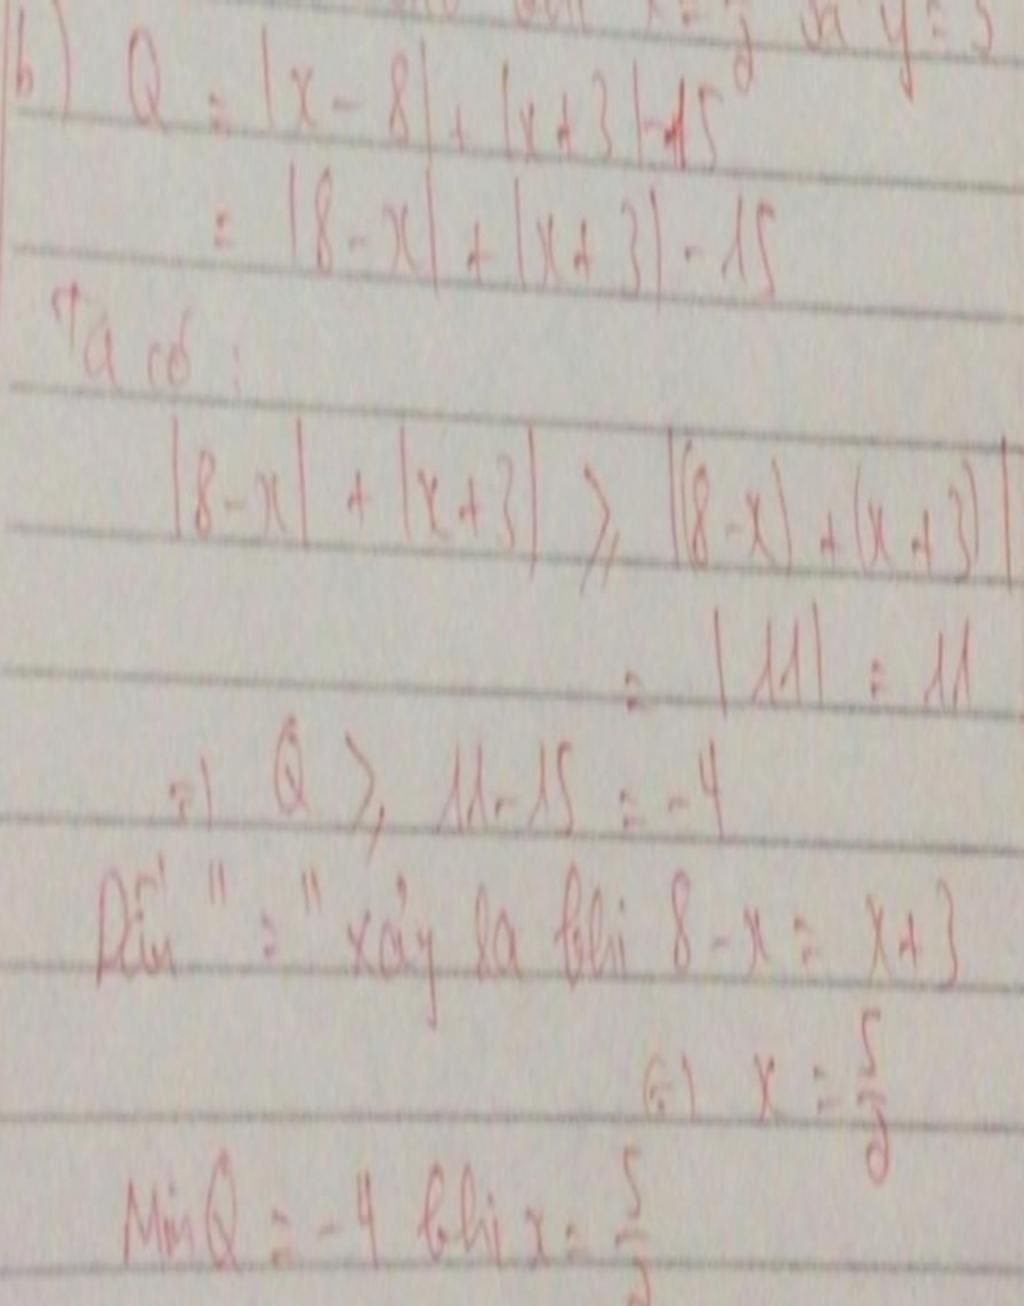 x = 5/2 và y = 5
b) Q = |x - 8| + |x + 3| - 15
= |8 - x| + |x + 3| - 15
Ta có :
|8 - x| + |x + 3| ≥ |(8 - x) + (x + 3)|
= |11| = 11
=> Q ≥ 11 - 15 = -4
Dấu "=" xảy ra khi 8 - x = x + 3
<=> x = 5/2
Min Q = -4 khi x = 5/2